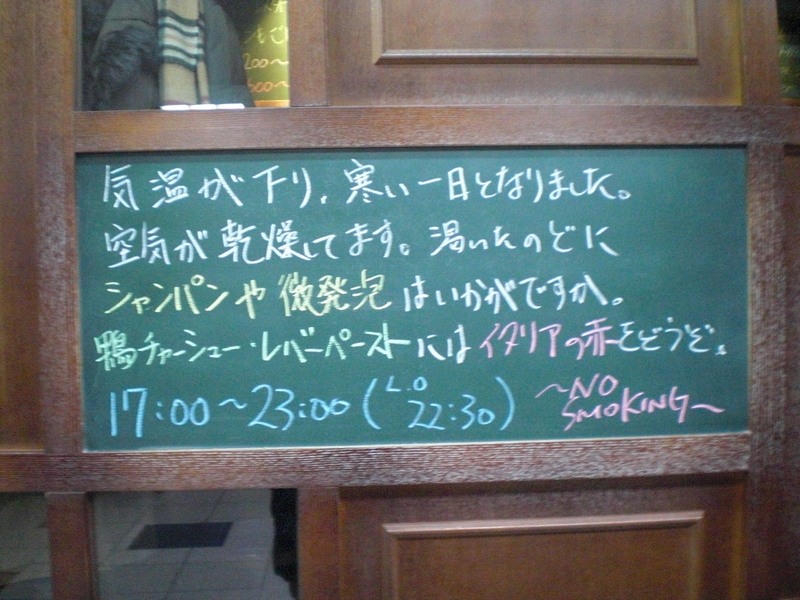 気温が下り、寒い一日となりました。
空気が乾燥してます。渇いたのどに
シャンパンや微発泡はいかがですか。
鴨チャーシュー・レバーペーストにはイタリアの赤をどうぞ。
17:00〜23:00(L.O 22:30)
〜NO SMOKING〜